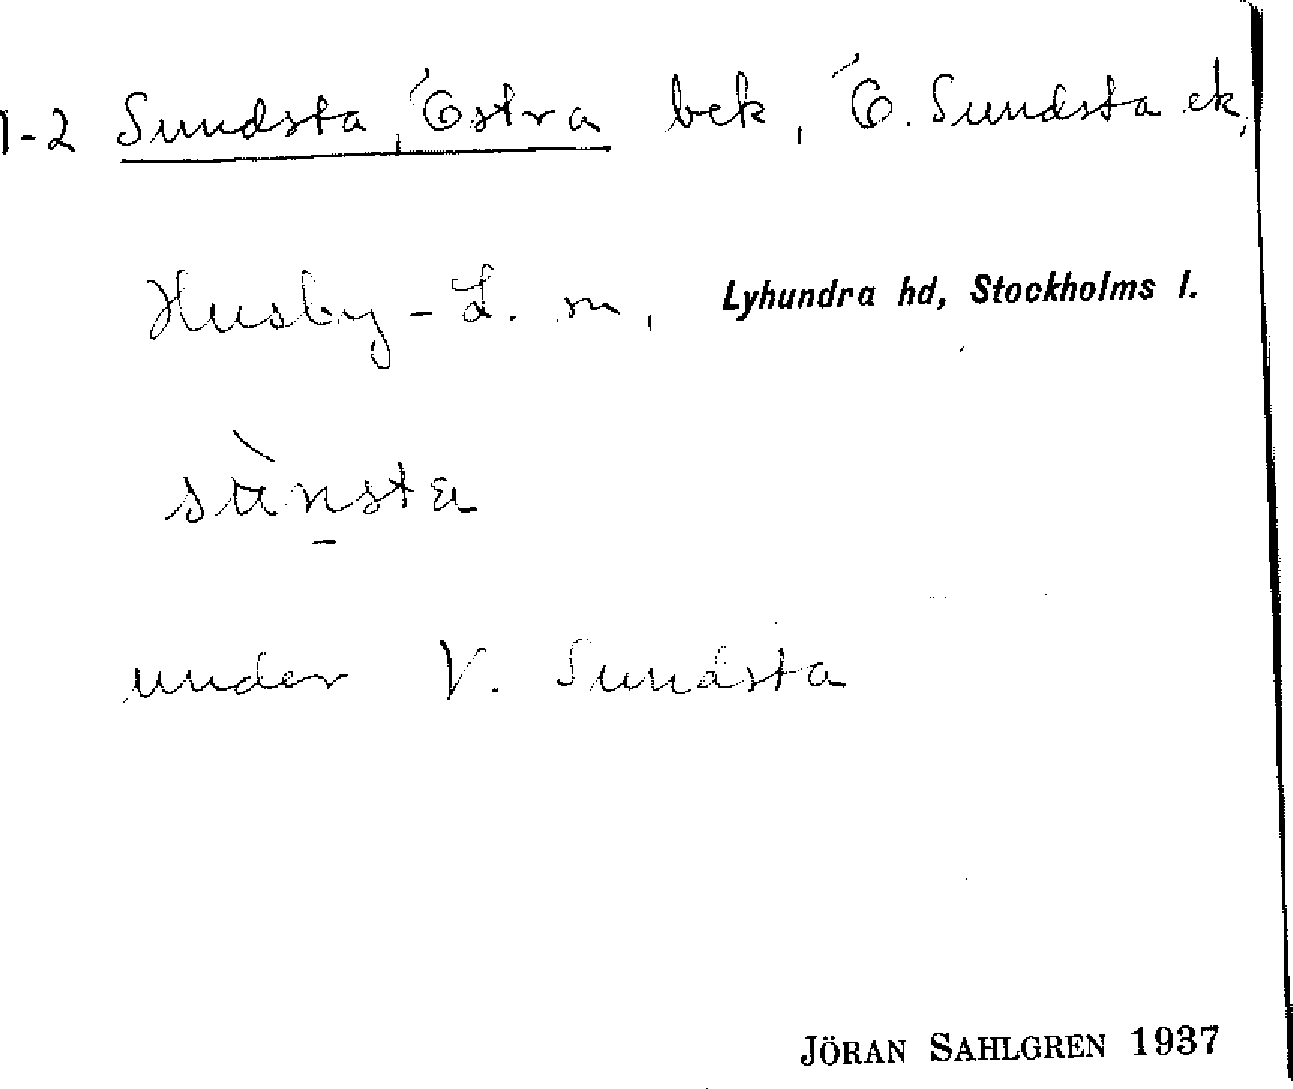 1-2 Sundsta, Östra bek, Ö. Sundsta ek,
Husby-L. sn, Lyhundra hd, Stockholms l.
sùnsta
under V. Sundsta
JÖRAN SAHLGREN 1937